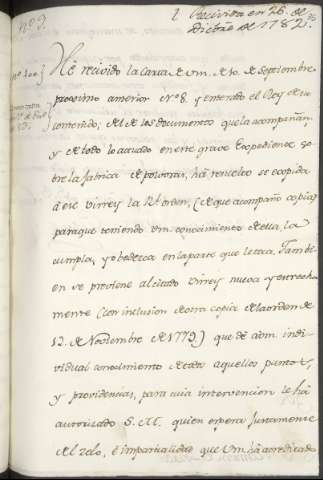 nº 9.
Recivida en 26. de
Dicbre de 1782.
He recivido la Carta de vm. de 10. de Septiembre
proximo anterior Nº 8. y enterado el Rey de su
contenido, el de los documentos que la acompañan,
y de todo lo actuado en este grave Expediente so
bre la fabrica de polvora, há resuelto se expida
à ese Virrey la Rl. orden, (de que acompaño copia)
para que teniendo vm. conocimiento de ella, la
cumpla, y obedezca en la parte que le toca. Tambi
en se previene al citado Virrey nueva y estrecha
mente (con inclusion de otra copia de la orden de
12. de Noviembre de 1779.) que dè à vm. indi
vidual conocimiento de todos aquellos puntos,
y providencias, para cuia intervencion le há
autorizado S. M. quien espera justamente
del zelo, è imparcialidad que vm. ha acreditado